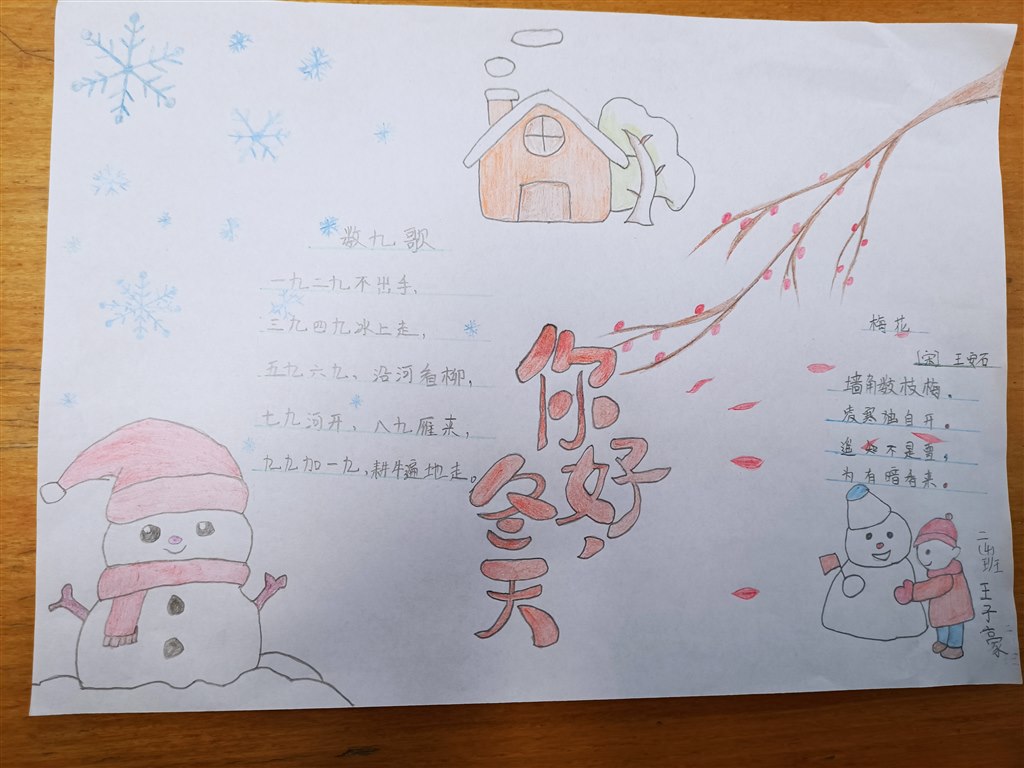 数九歌
一九二九不出手,
三九四九冰上走,
五九六九、沿河看柳,
七九河开、八九雁来,
九九加一九,耕牛遍地走。
你好,
冬天
梅花
[宋] 王安石
墙角数枝梅。
凌寒独自开。
遥知不是雪,
为有暗香来。
二(4)班
王子豪